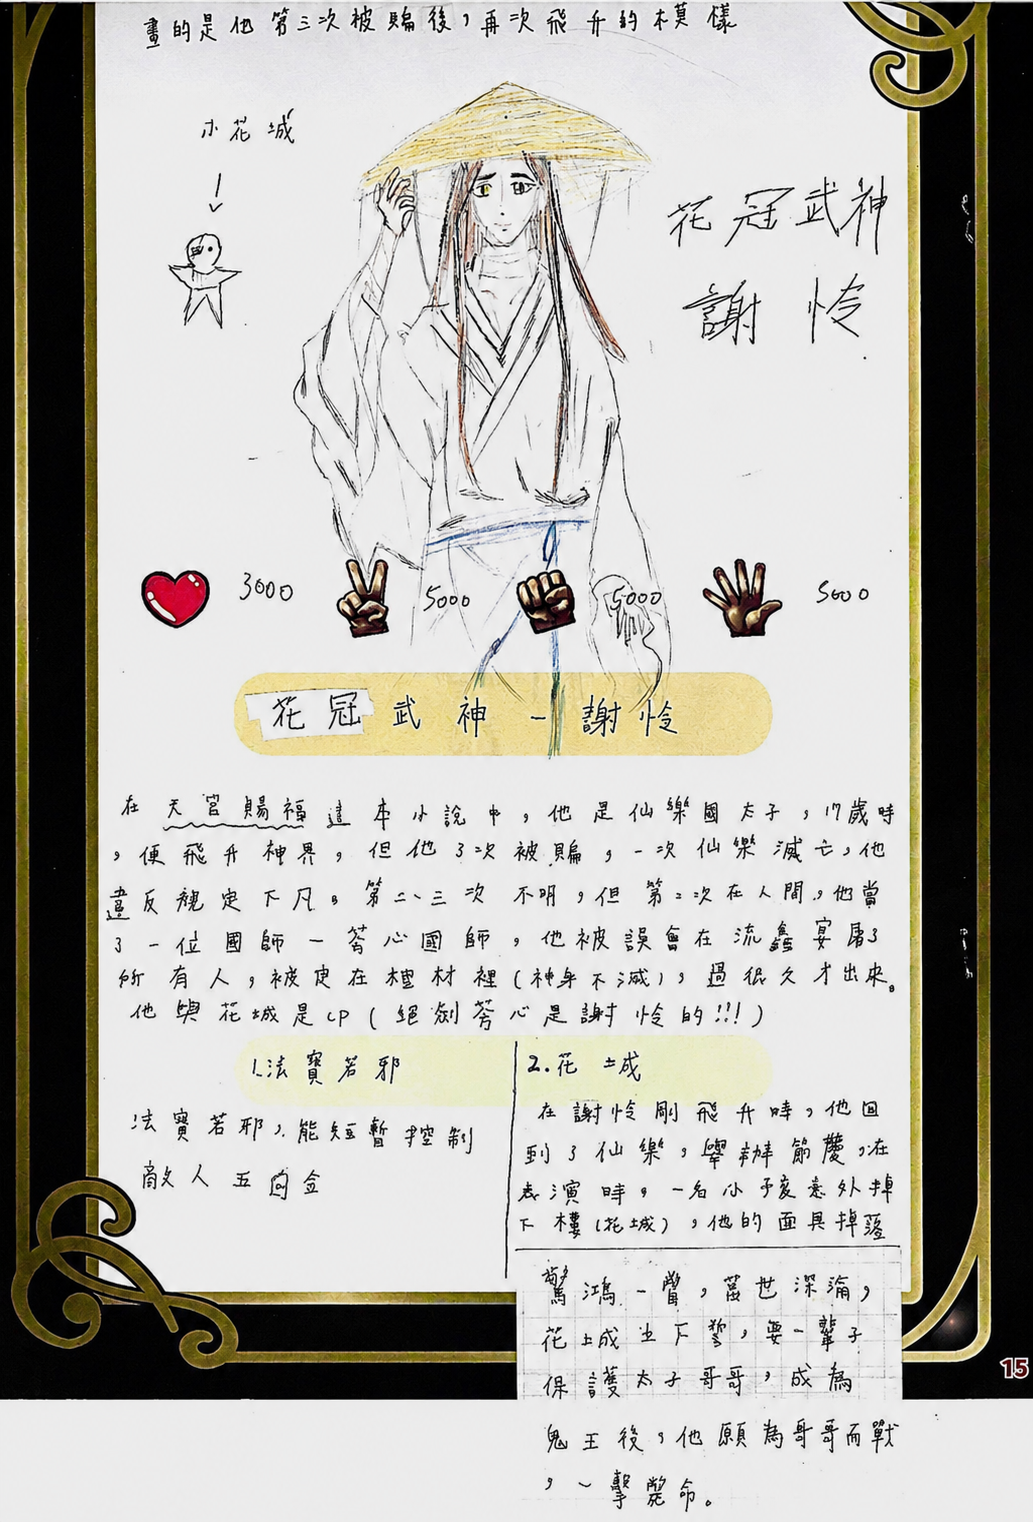 畫的是他第三次被騙後，再次飛升的模樣
小花城
花冠武神
謝怜
3000
5000
5000
5000
花冠武神-謝怜
在天官賜福這本小說中，他是仙樂國太子，17歲時
，便飛升神界，但他3次被騙，一次仙樂滅亡，他
違反規定下凡。第二、三次不明，但第二次在人間，他當
了一位國師-芳心國師，他被誤會在流鑫宴屠了
所有人，被定在棺材裡(神身不滅)，過很久才出來。
他與花城是CP(絕劍芳心是謝怜的!!!)
1.法寶若邪
法寶若邪，能短暫控制
敵人五回合
2.花城
在謝怜剛飛升時，他回
到了仙樂，舉辦節慶，在
表演時，一名小孩意外掉
下樓(花城)，他的面具掉落
驚鴻一瞥，萬世深淪，
花城立下誓，要一輩子
保護太子哥哥，成為
鬼王後，他願為哥哥而戰
，一擊斃命。
15